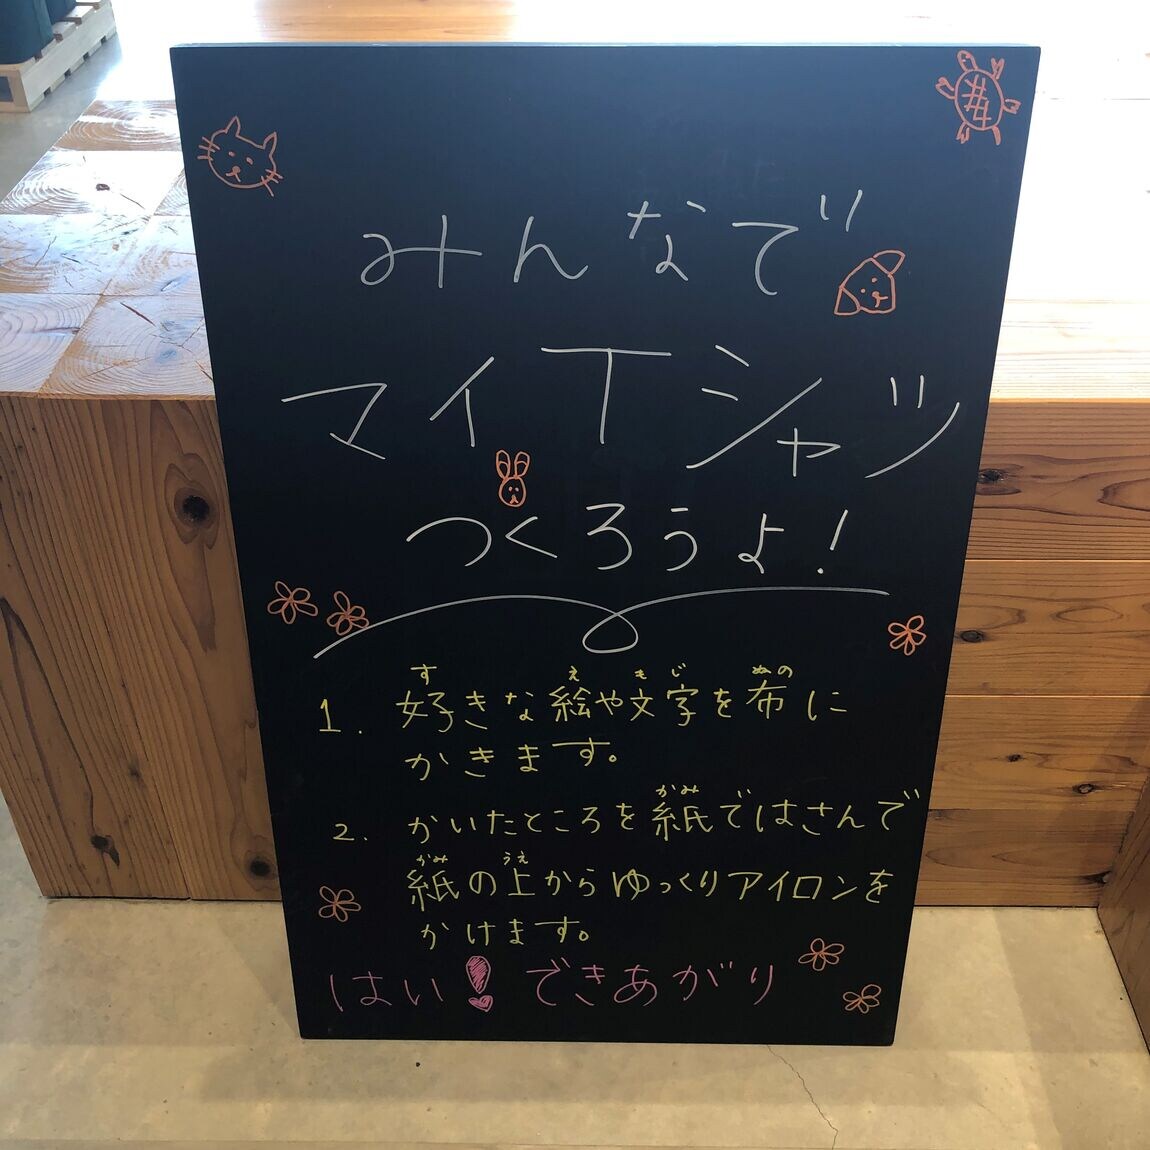 みんなで
マイTシャツ
つくろうよ!
1. 好きな絵や文字を布に
かきます。
2. かいたところを紙ではさんで
紙の上からゆっくりアイロンを
かけます。
はい!できあがり